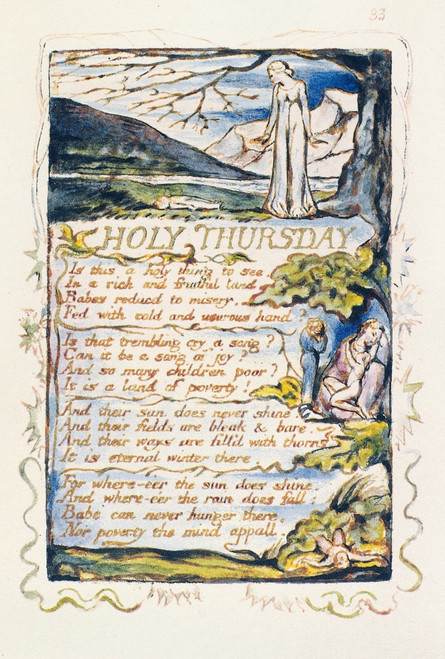 33
HOLY THURSDAY
Is this a holy thing to see,
In a rich and fruitful land,
Babes reducd to misery,
Fed with cold and usurous hand?
Is that trembling cry a song?
Can it be a song of joy?
And so many children poor?
It is a land of poverty!
And their sun does never shine.
And their fields are bleak & bare.
And their ways are fill'd with thorns.
It is eternal winter there.
For where-e'er the sun does shine,
And where-e'er the rain does fall:
Babe can never hunger there,
Nor poverty the mind appall.